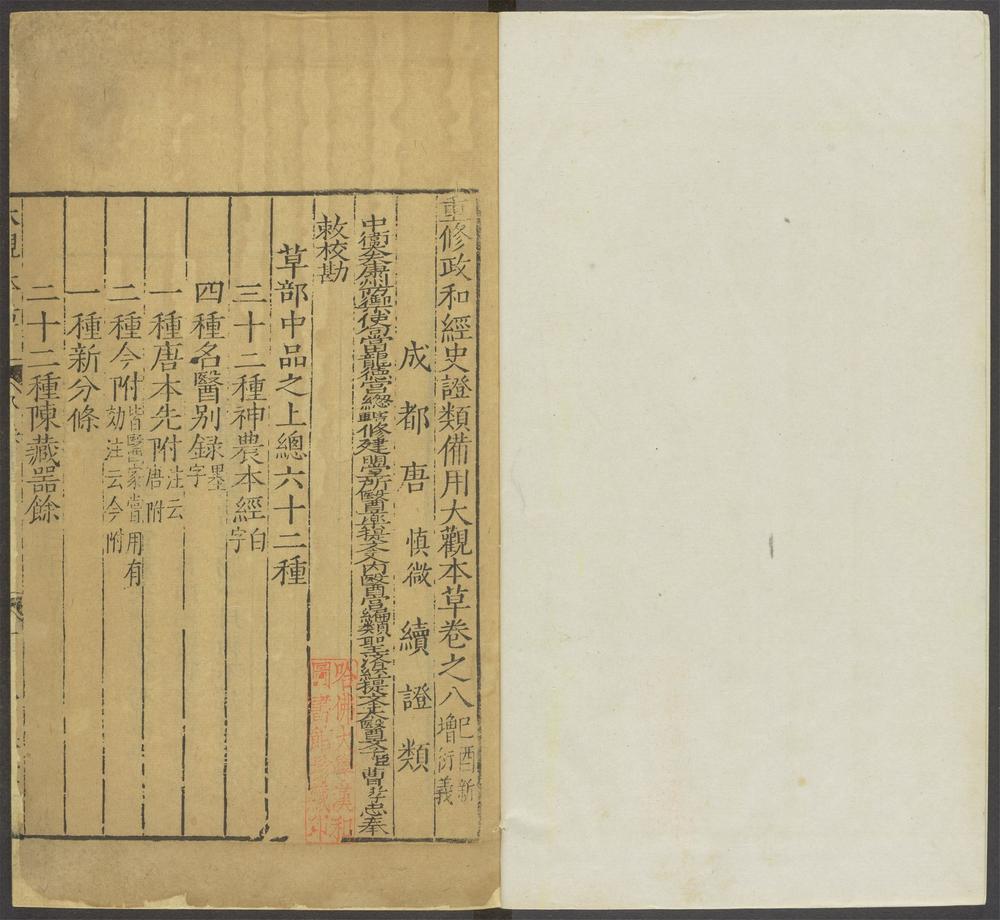 重修政和經史證類備用大觀本草卷之八 己酉新增衍義
成都唐慎微續證類
中衛大夫康州防禦使句當龍德宮總轄修建明堂所醫藥提舉入內醫官編類聖濟經提舉太醫學臣曹孝忠奉
敕校勘
草部中品之上總六十二種
三十二種神農本經 白字
四種名醫别録 墨字
一種唐本先附 注云唐附
二種今附 皆醫家嘗用有効注云今附
一種新分條
二十二種陳藏器餘
哈佛大學漢和
圖書館珍藏印